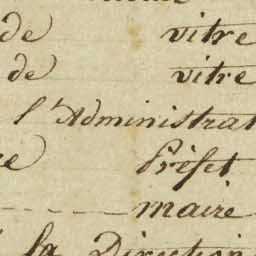 de vitre
de vitre
l'Administrat
Préfet
maire
la Direction